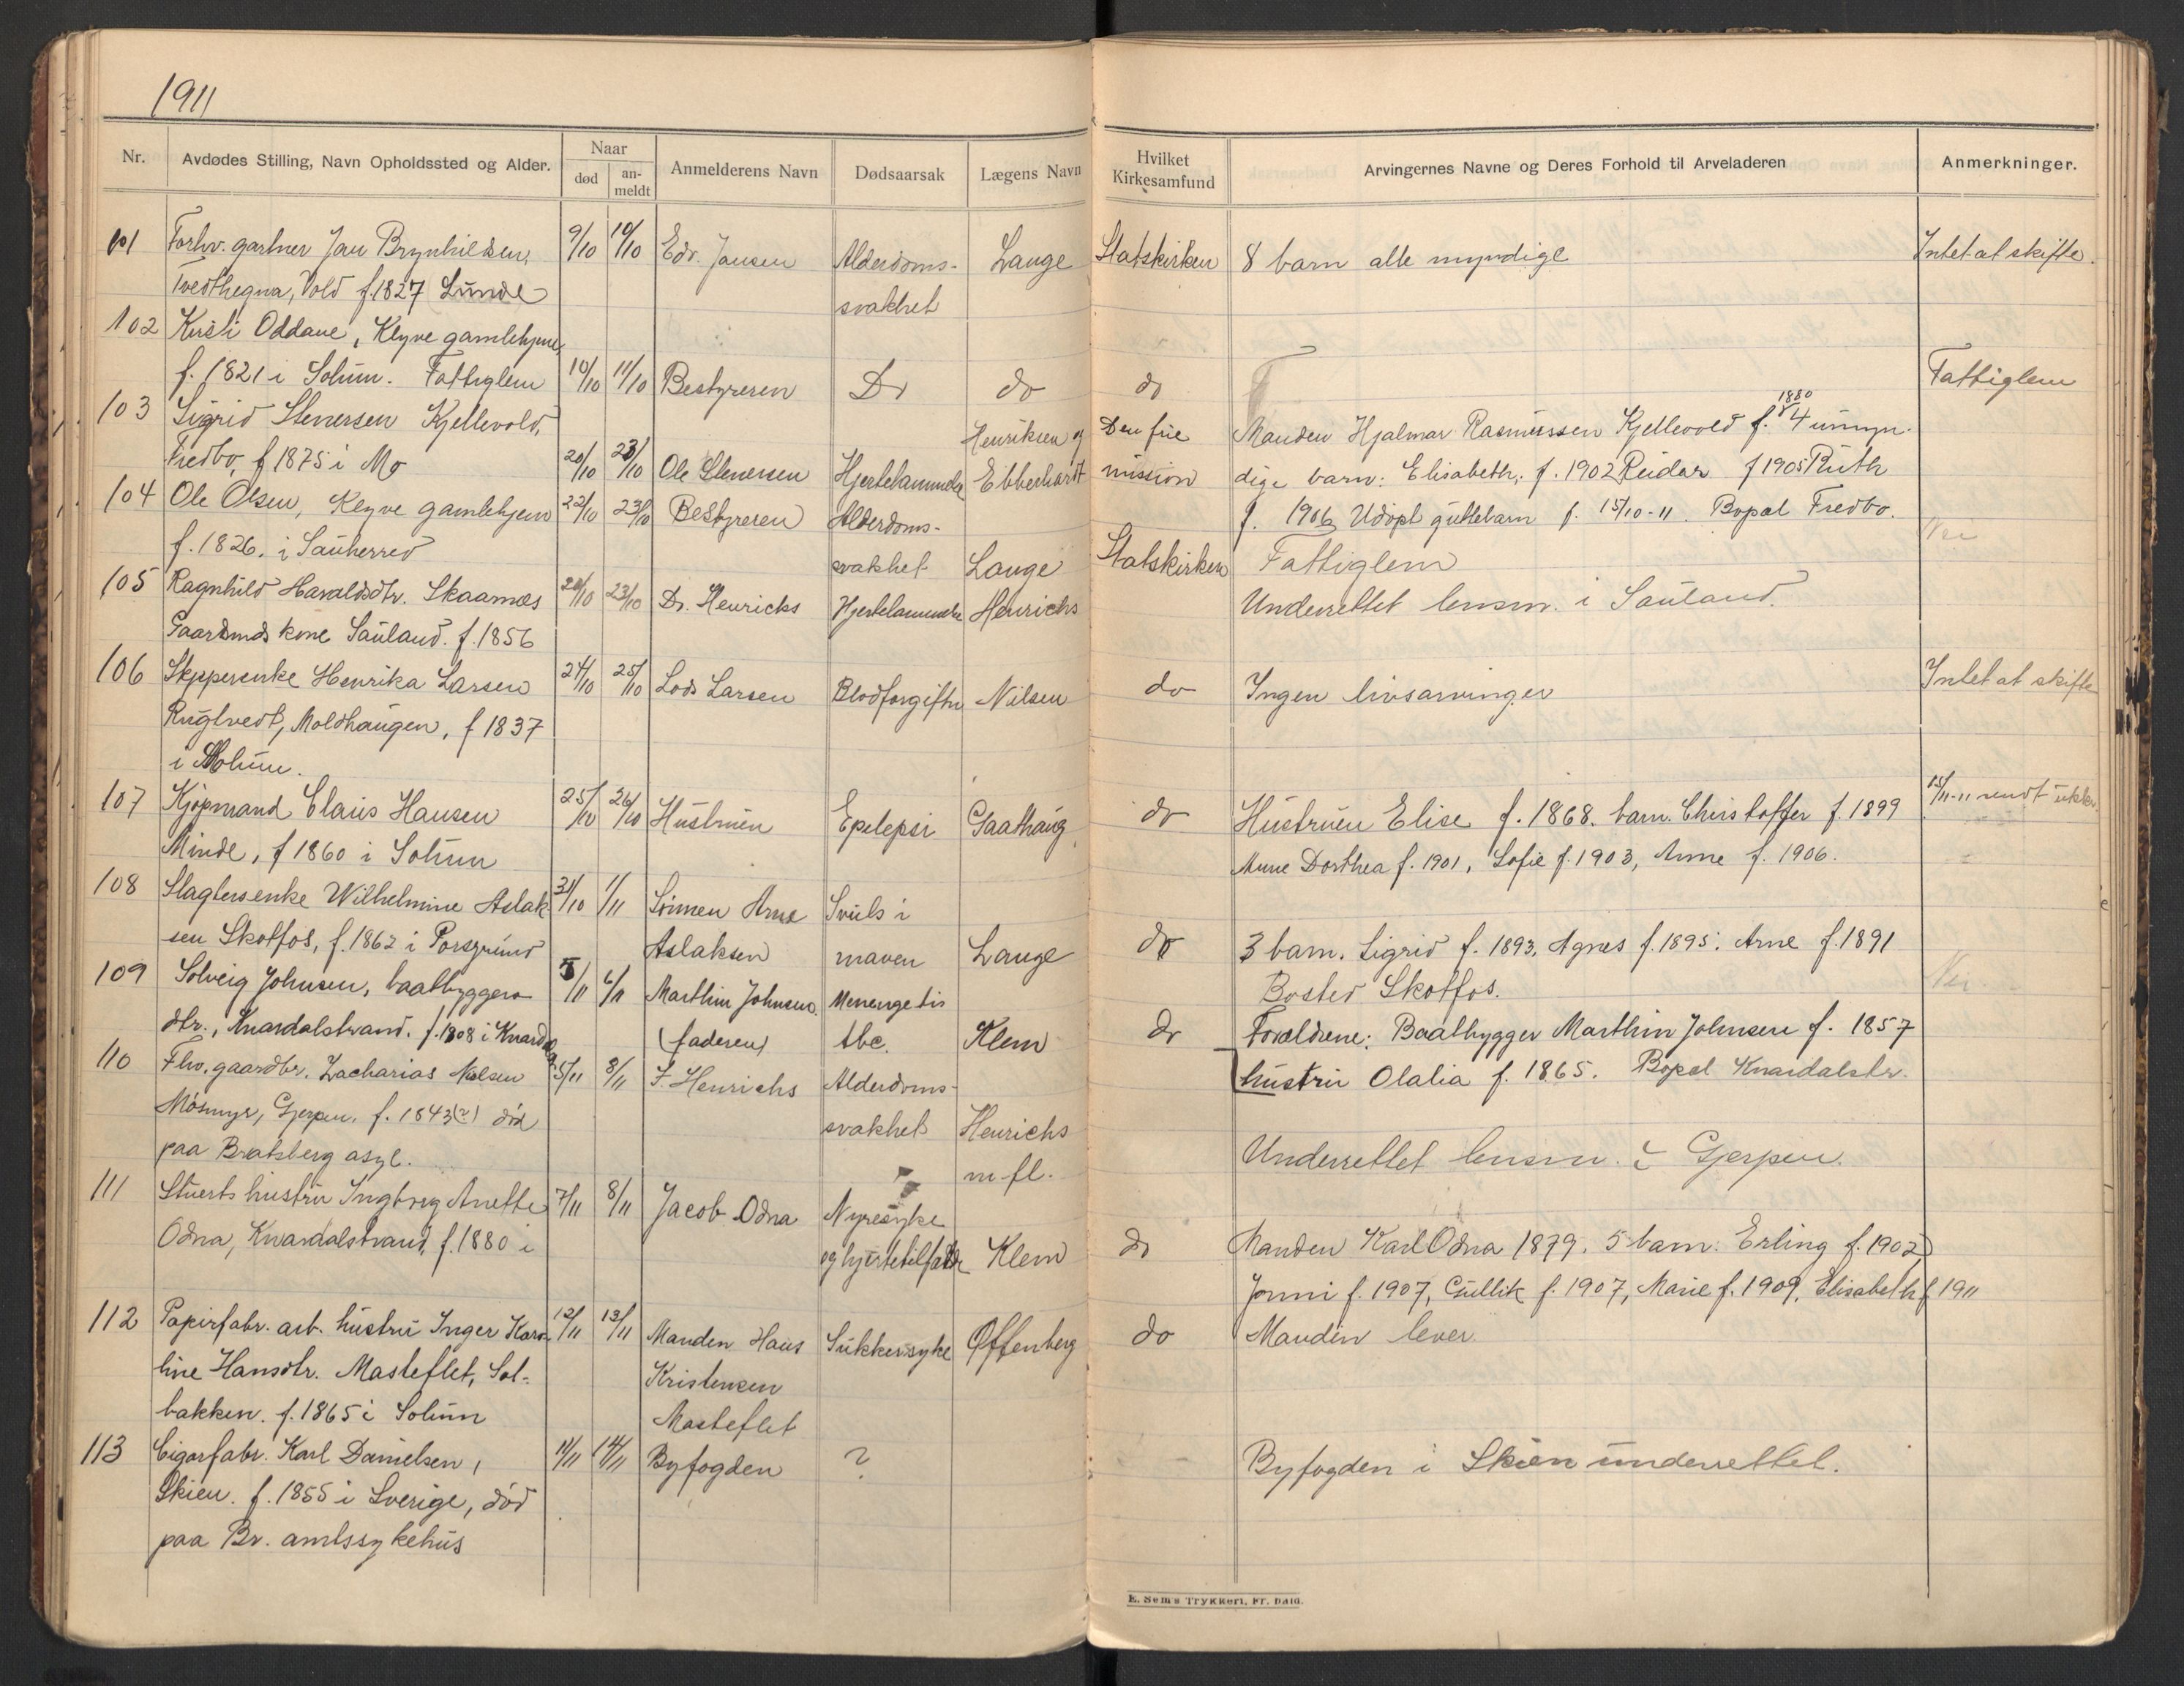 1911
Nr. Avdødes Stilling, Navn Opholdssted og Alder. Naar død an-meldt Anmelderens Navn Dødsaarsak Lægens Navn Hvilket Kirkesamfund Arvingernes Navne og Deres Forhold til Arveladeren Anmerkninger.
101 Forhv. gartner Jan Brynhildsen, 9/10 10/10 Edv. Jansen Alderdoms- Lange Statskirken 8 barn alle myndige Intet at skifte.
Tvedthegna, Vold f. 1827 Lunde svakhet
102 Kirsti Oddane, Klyve gamlehjem,
f. 1821 i Solum. Fattiglem 10/10 11/10 Bestyreren Do do do Fattiglem
103 Sigrid Stenersen Kjellevold, Henriksen og Den frie Manden Hjalmar Rasmussen Kjellevold f. 1880 4 umyn-
Fredbo, f 1875 i Mo 20/10 23/10 Ole Stenersen Hjertelammelse Ebberhardt mission dige barn: Elisabeth, f. 1902 Reidar f 1905 Ruth
104 Ole Olsen, Klyve gamlehjem 22/10 23/10 Bestyreren Alderdoms- f. 1906 Udøpt guttebarn f. 15/10-11. Bopæl Fredbo.
f. 1826. i Sauherred svakhet Lange Statskirken Fattiglem Nei
105 Ragnhild Haraldsdtr. Skaarnes 20/10 23/10 Dr. Henrichs Hjertelammelse Henrichs Underrettet lensm. i Sauland.
Gaardmds kone Sauland. f. 1856
106 Skipperenke Henrika Larsen 24/10 25/10 Lods Larsen Blodforgiftn Nilsen do Ingen livsarvinger Intet at skifte
Rugtvedt, Moldhaugen, f 1837
i Solum.
107 Kjøpmand Claus Hansen 25/10 26/10 Hustruen Epelepsi Gaathaug do Hustruen Elise f. 1868. barn. Christoffer f. 1899
Minde, f 1860 i Solum Anne Dorthea f. 1901, Sofie f. 1903, Anne f. 1906.
108 Slagterenke Wilhelmine Aslak- 31/10 1/11 Sønnen Arne Svuls i
sen Skotfos, f. 1862 i Porsgrund Aslaksen maven Lange do 3 barn. Sigrid f. 1893, Agnes f. 1895. Arne f. 1891
109 Solveig Johnsen, baatbyggers 5/11 6/11 Marthin Johnsen Menengetis Bosted Skotfos. Nei
dtr., Knardalstrand. f. 1908 i Knardal (faderen) tbc. Klem do Forældrene: Baatbygger Marthin Johnsen f. 1857
110 Fhv. gaardbr. Zacharias Nilsen 5/11 8/11 F. Henrichs Alderdoms- hustru Olalia f. 1865. Bopæl Knardalstr.
Mosmyr, Gjerpen. f. 1843(?) død svakhet Henrichs
paa Bratsberg asyl. m-fl. Underrettet lensm. i Gjerpen.
111 Stuerts hustru Ingborg Anette 7/11 8/11 Jacob Odna Nyresyke
Odna, Knardalstrand, f. 1880 i og hjertetilfælde Klem do Manden Karl Odna 1879. 5 barn. Erling f. 1902,
Jonni f. 1907, Gullik f. 1907, Marie f. 1909, Elisabeth f 1911
112 Papirfabr. arb. hustru Inger Karo- 12/11 13/11 Manden Hans Sukkersyke Offenberg do Manden lever.
line Hansdtr. Masteflet, Sol- Kristensen
bakken. f. 1865 i Solum Masteflet
113 Cigarfabr. Karl Danielsen, 11/11 14/11 Byfogden ? Byfogden i Skien underrettet.
Skien. f. 1855 i Sverige, død
paa Br. amtssykehus
E. Sems Trykkeri, Fr. hald.